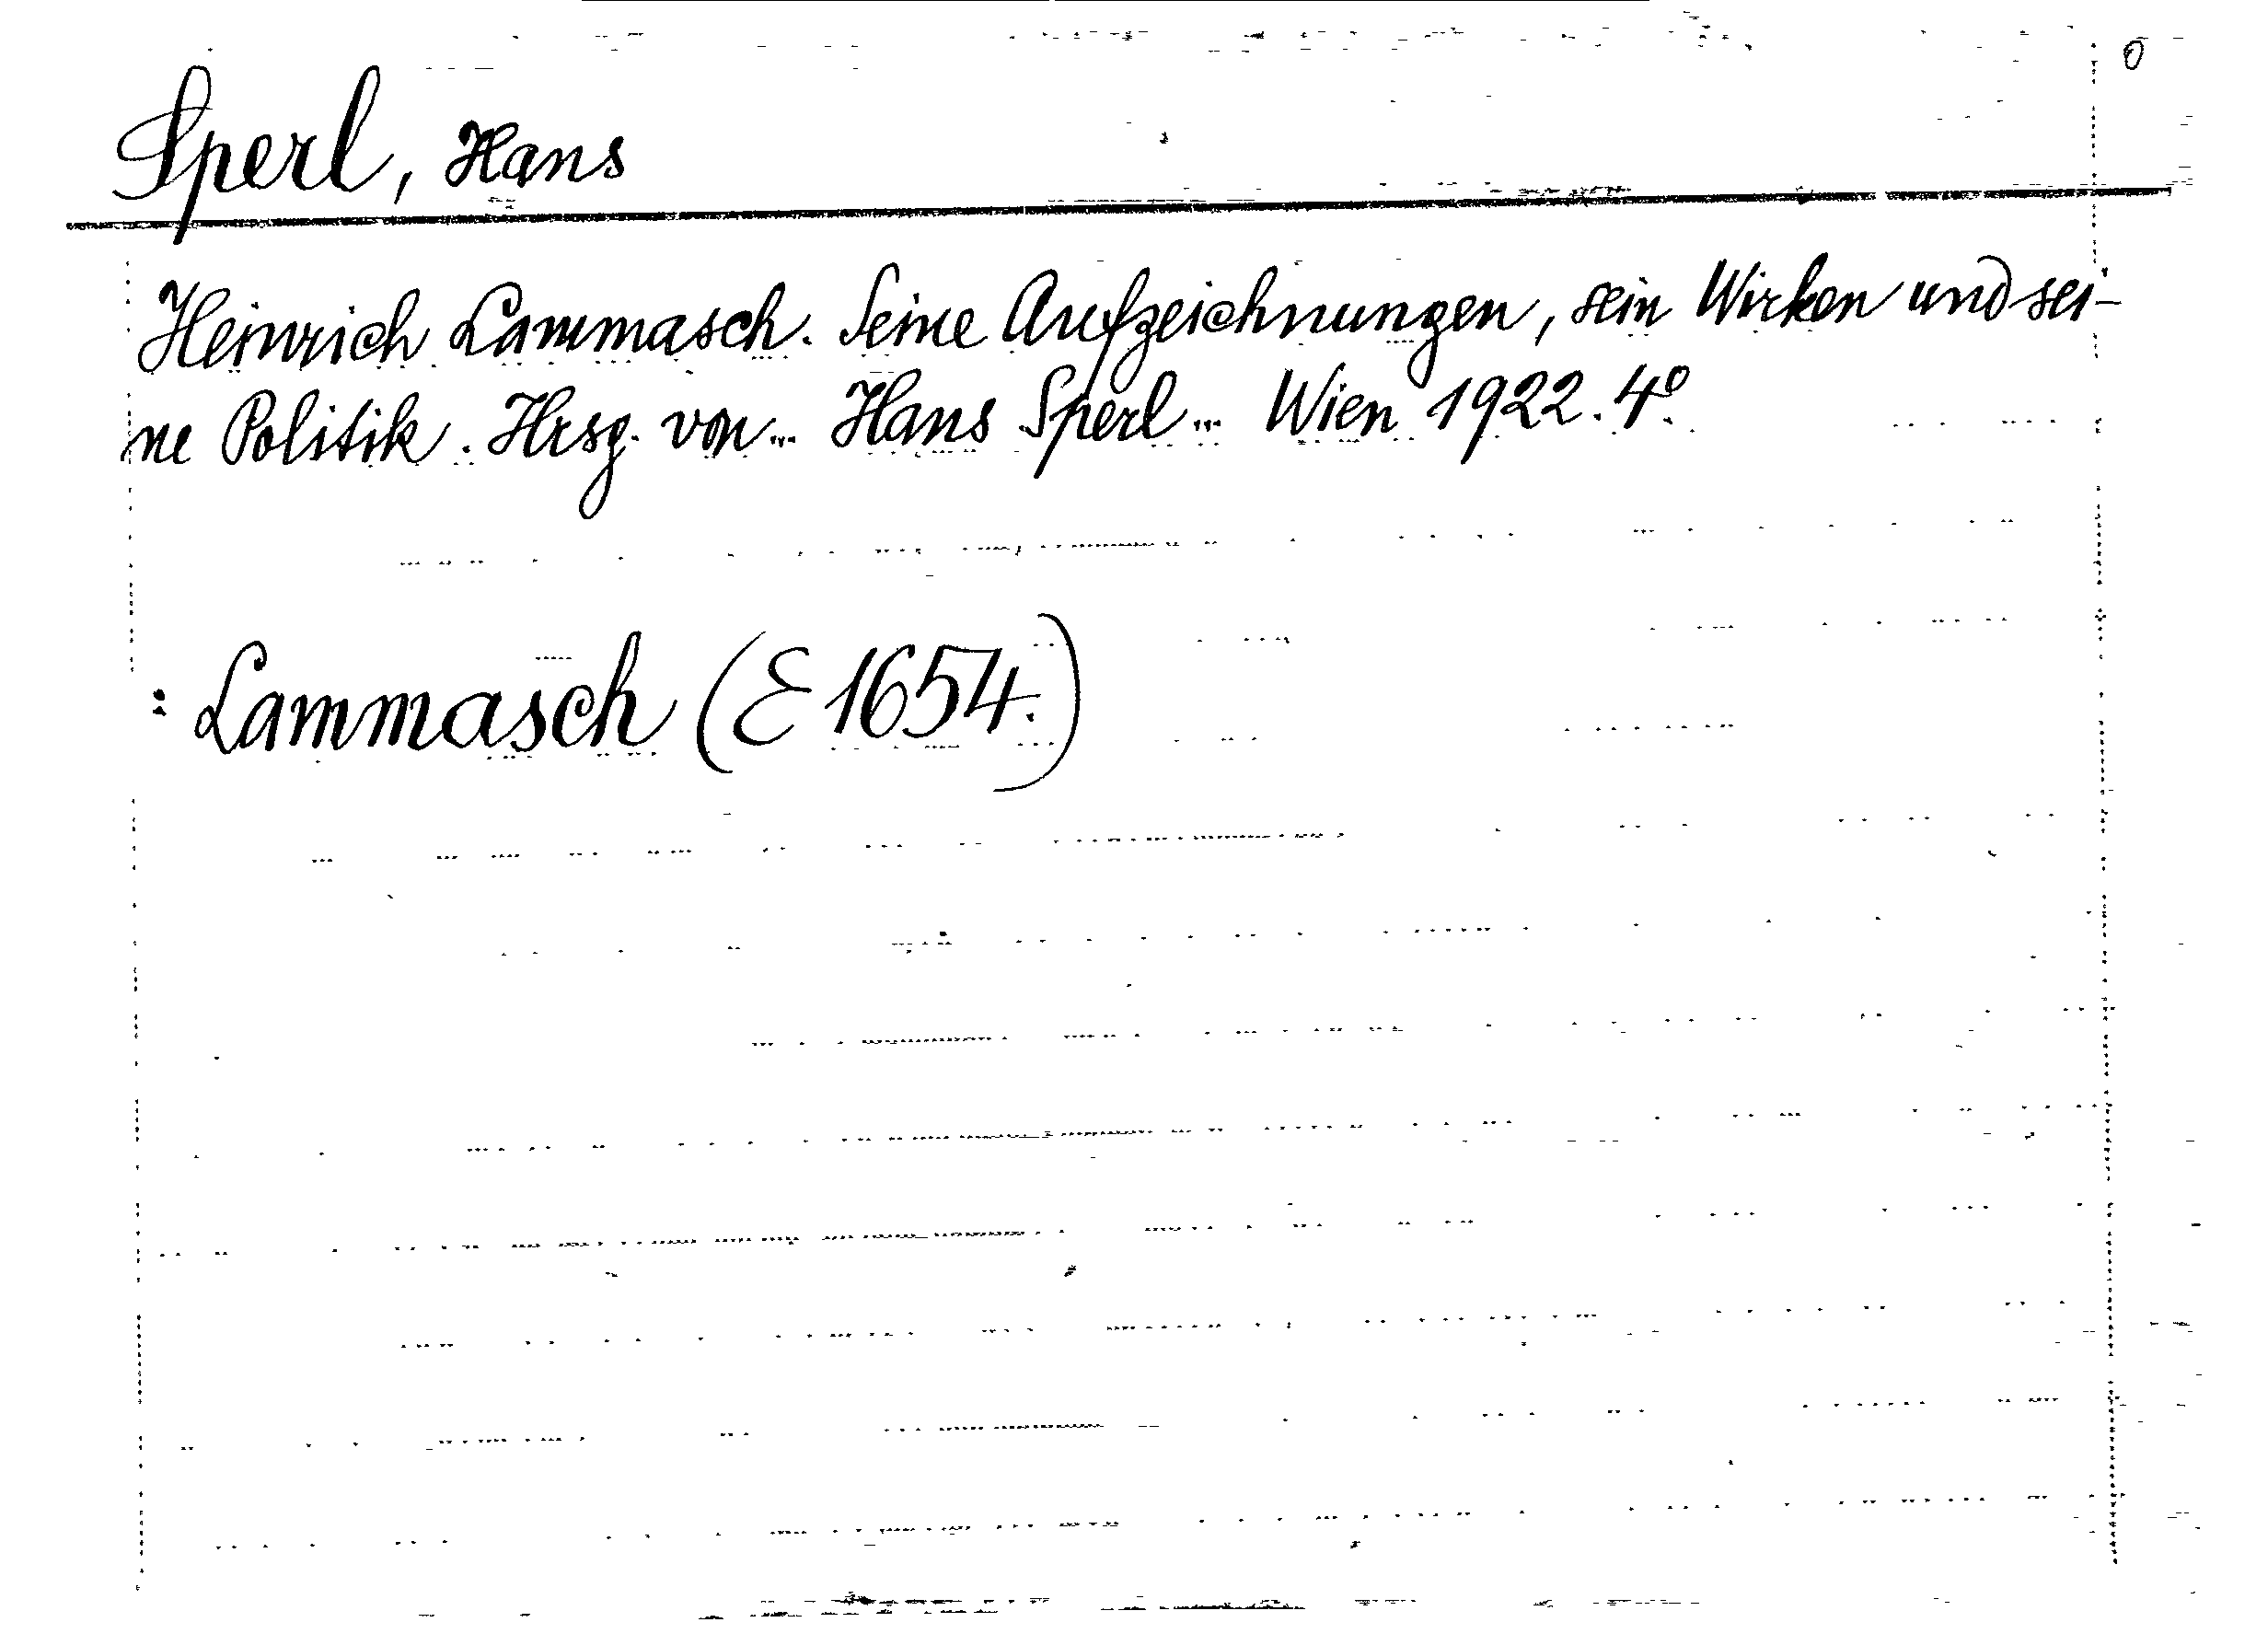 0
Sperl, Hans
Heinrich Lammasch. Seine Aufzeichnungen, sein Wirken und sei-
ne Politik. Hrsg. von... Hans Sperl... Wien 1922. 4°.
: Lammasch (E 1654.)